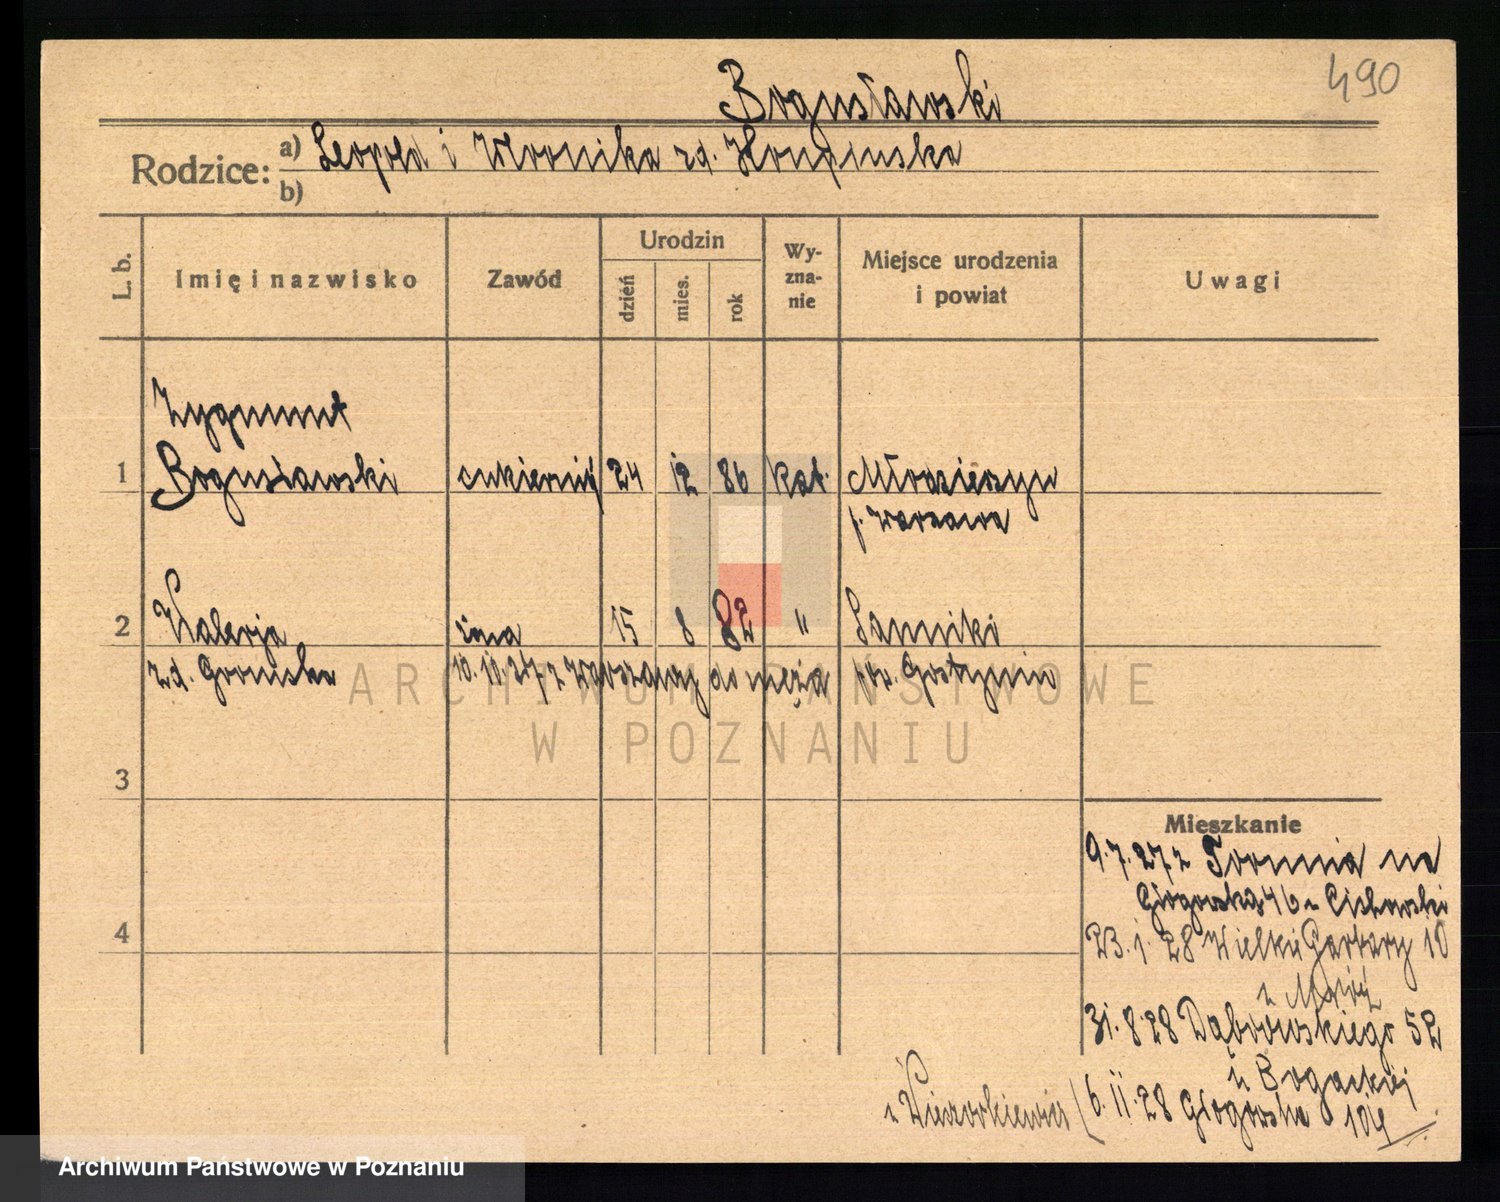 490
Bogusławski
Rodzice:
a) Leopold i Weronika zd.
b)
L. b.
Imię i nazwisko
Zawód
Urodzin
dzień
mies.
rok
Wy-
zna-
nie
Miejsce urodzenia
i powiat
Uwagi
Zygmunt
1 Bogusławski cukiernik 24 12 86 kat.
p. Warszawa
2 Walerja żona 15 8 82 " Sanniki
zd. Grońska 10.10.27 z Warszawy do męża pow. Gostynin
3
4
Mieszkanie
9.7.27 z Torunia na
Głogowską 46 u Cichowski
23.1.28 Wielkie Garbary 10
u
31.8.28 Dąbrowskiego 52
u Bogackiej
6.11.28 Głogowska 109
ARCHIWUM PAŃSTWOWE
W POZNANIU
Archiwum Państwowe w Poznaniu